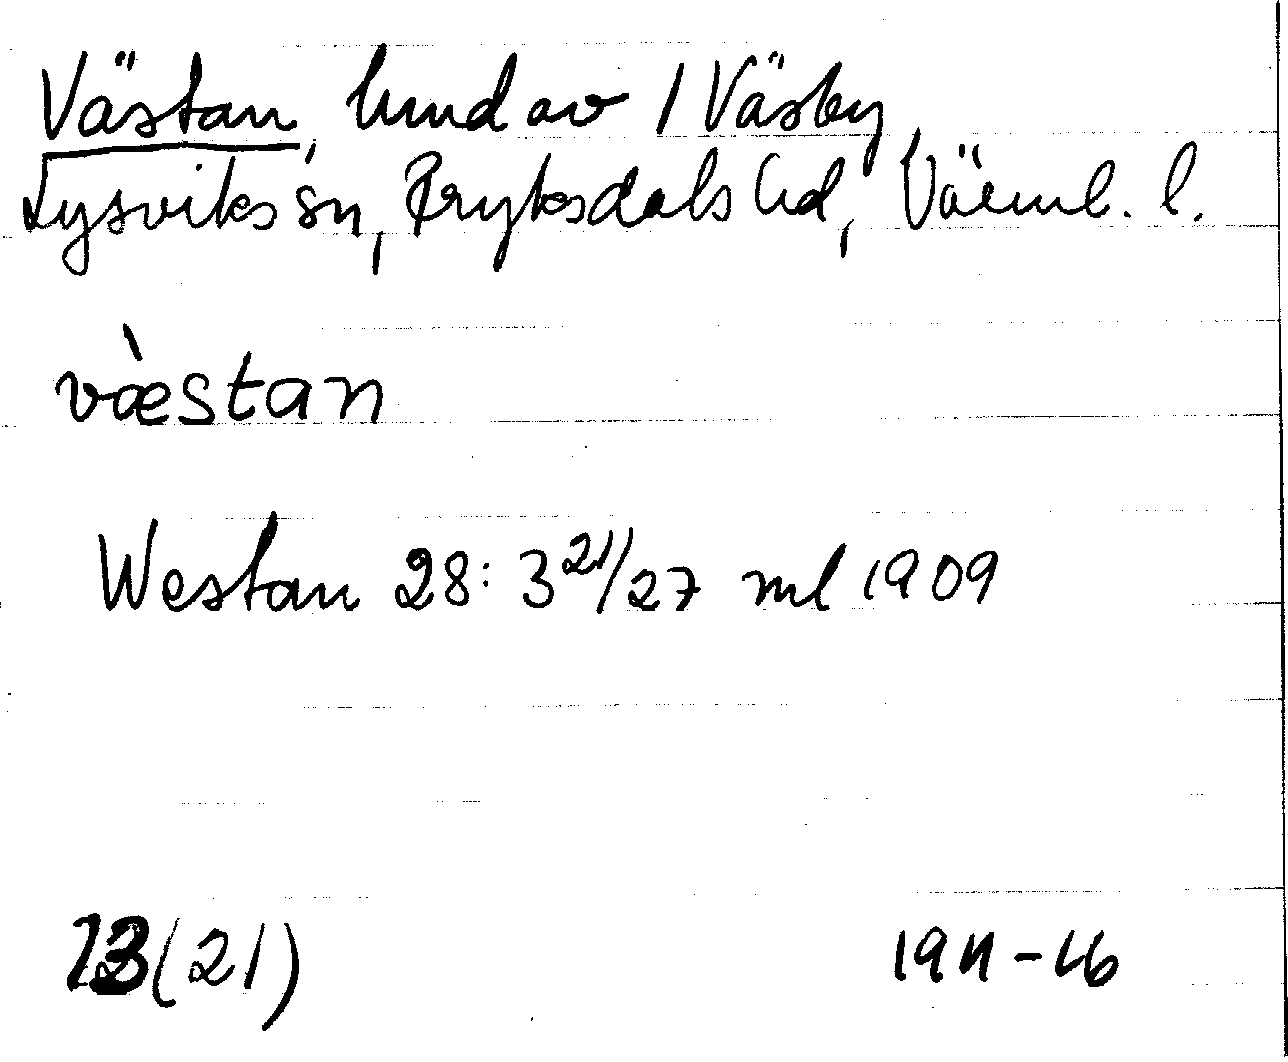 Västan, hmd av 1 Väsby
Lysviks sn, Fryksdals hd, Värml. l.
væ̀stan
Westan 28:3 21/27 ml 1909
13 (21)
1911-16